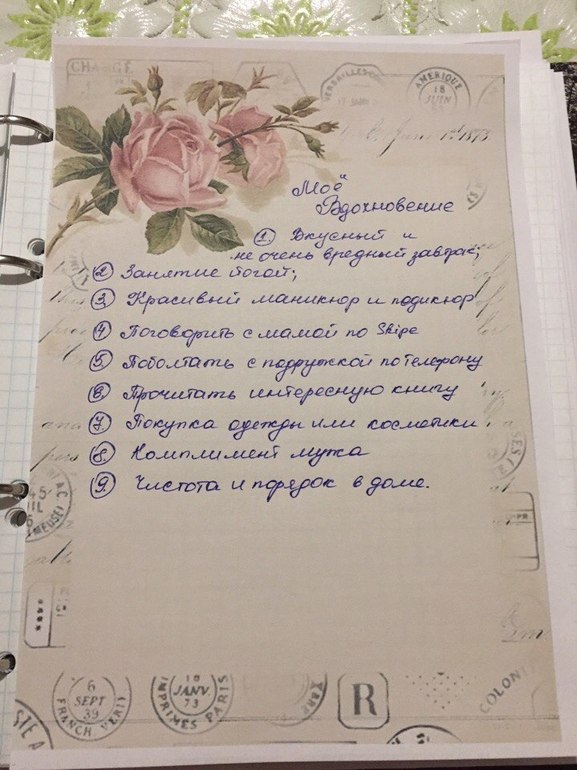 CHANGE
VERSAILLES
AMERIQUE
18
JUIN
Моё
Вдохновение
1. Вкусный и
не очень вредный завтрак;
2. Занятие йогой;
3. Красивый маникюр и педикюр
4. Поговорить с мамой по Skipe
5. Поболтать с подружкой по телефону
6. Прочитать интересную книгу
7. Покупка одежды или косметики
8. Комплимент мужа
9. Чистота и порядок в доме.
6
SEPT
39
18
JANV
73
IMPRIMES PARIS
R
COLON